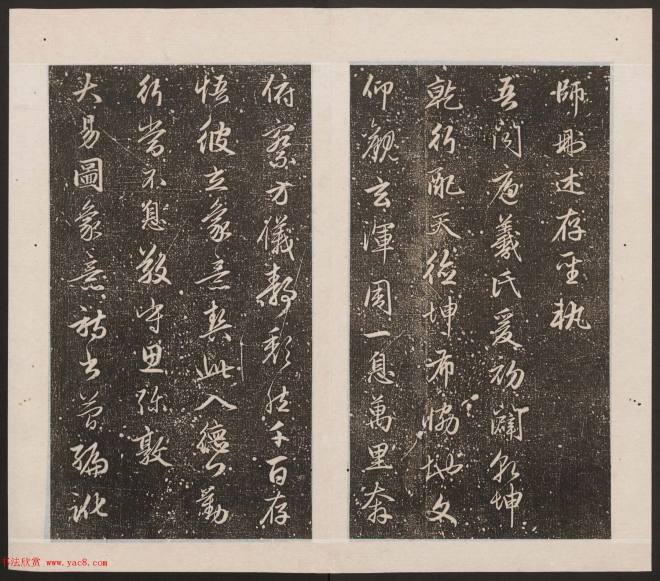 師刪述存聖軌
吾聞庖羲氏爰初闢乾坤
乾行配天德坤布協地文
仰觀玄渾周一息萬里奔
俯察方儀靜頹然千百存
悟彼立象意契此入德門勤
行當不息敬守思彌敦
大易圖象隱詩書簡編訛
书法欣赏 www.yac8.com